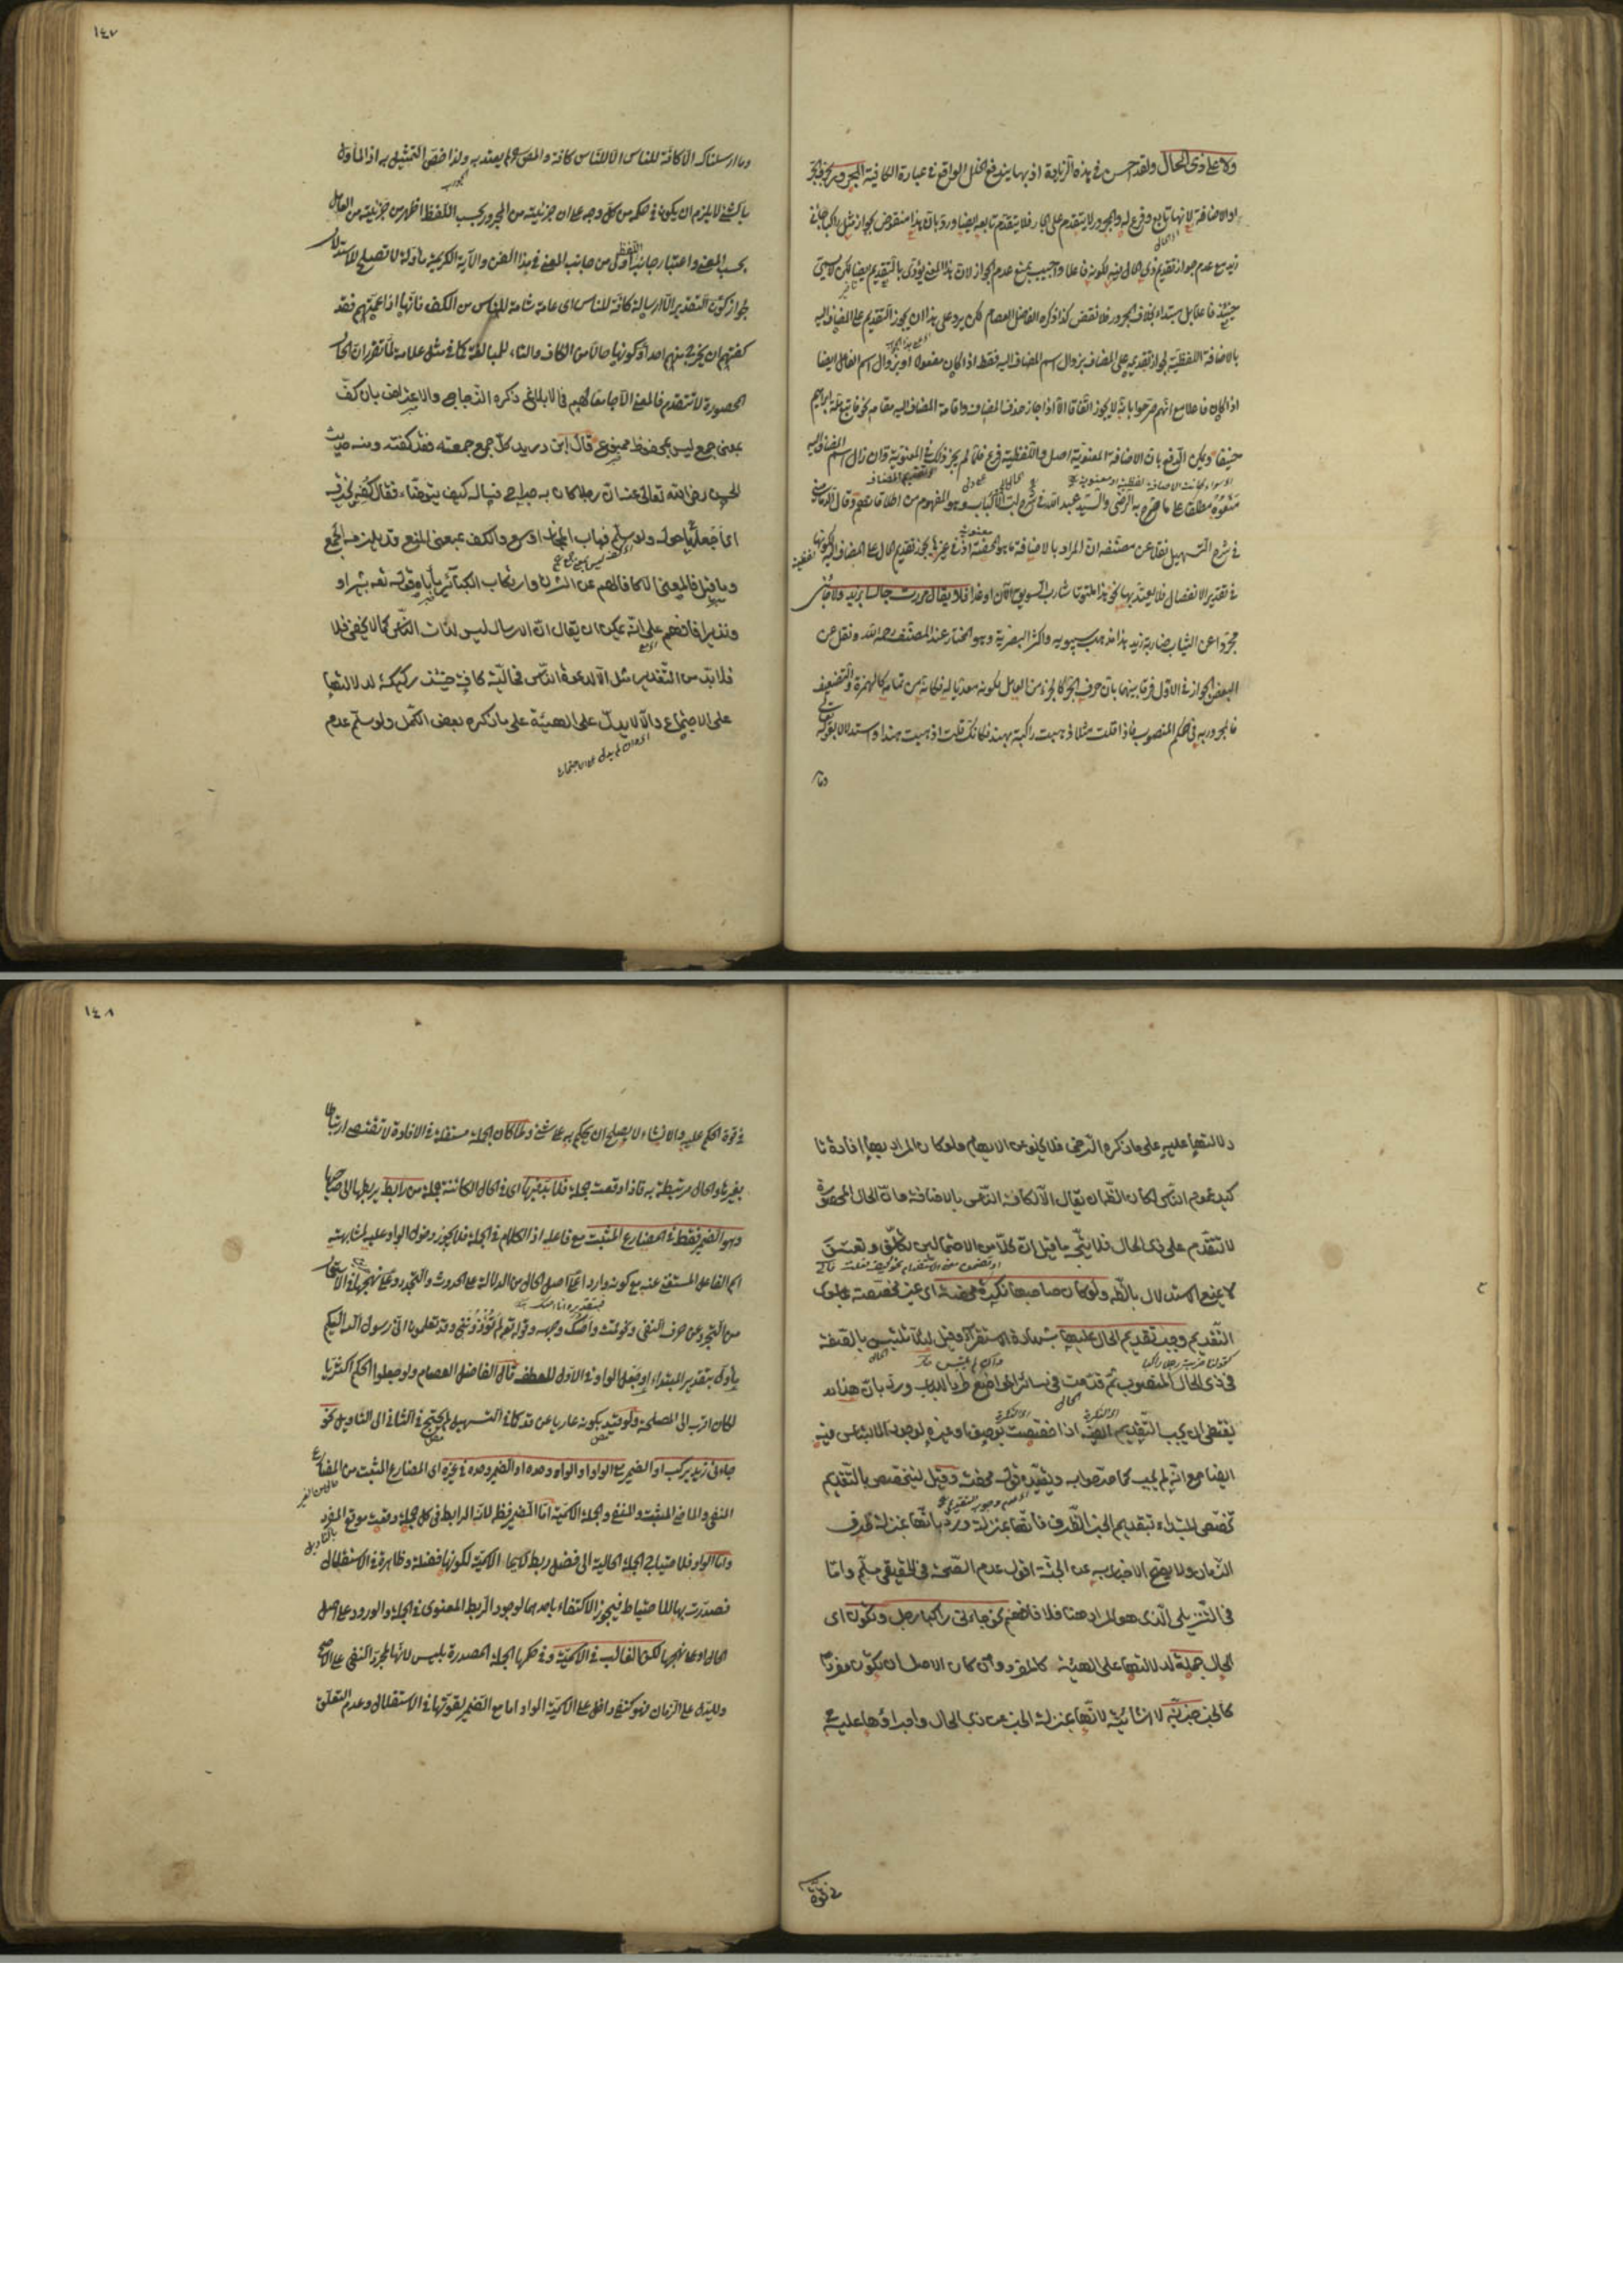 ولا على ذى الحال ولقد احسن فى هذه الزيادة اذ بها يندفع الخلل الواقع فى عبارة الكافية المجرور بحرف الجر
او الاضافة لانها تابع وفرع له والمجرور لا يتقدم على الجار فلا يتقدم تابعه ايضا ورد بان هذا منقوض بجواز مثل راكبا جاءنى
زيد مع عدم جواز تقديم ذى الحال فيه لكونه فاعلا واجيب بمنع عدم الجواز لان هذا المعنى يؤدى بالتقديم ايضا لكن لا يسمى
حينئذ فاعلا بل مبتداء بخلاف المجرور فلا نقض كذا ذكره الفاضل العصام لكن يرد على هذا ان يجوز التقديم على المضاف اليه
بالاضافة اللفظية لجواز تقديمه على المضاف بزوال اسم المضاف اليه فقط اذا كان مفعولا او بزوال اسم الفاعل ايضا
اذا كان فاعلا مع انهم صرحوا بانه لا يجوز اتفاقا الا اذا جاز حذف المضاف واقامة المضاف اليه مقامه نحو فاتبع ملة ابراهيم
حنيفا ويمكن الدفع بان الاضافة المعنوية اصل واللفظية فرع فلما لم يجز ذلك فى المعنوية وان زال اسم المضاف اليه
منعوه مطلقا على ما صرح به الرضى والسيد عبد الله فى شرح لب الالباب وهو المفهوم من اطلاقاتهم وقال
فى شرح التسهيل نقلا عن مصنفه ان المراد بالاضافة ما هو المحضة اذ فى غيرها يجوز تقديم الحال على المضاف اليه لكونها
فى تقدير الانفصال فلا يعتد بها نحو هذا ملتوتا شارب السويق الآن او غدا فلا يقال مررت جالسا بزيد ولا جاءتنى
مجردا عن الثياب ضاربة زيد هذا مذهب سيبويه واكثر البصرية وهو المختار عند المصنف رحمه الله ونقل عن
البعض الجواز فى الاول فرقا بينهما بان حرف الجر كالجزء من العامل لكونه معديا له فكانه من تمامه كالهمزة والتضعيف
فالمجرور به فى حكم المنصوب فاذا قلت مثلا ذهبت راكبة بهند فكانك قلت اذهبت هندا واستدلالا بقوله
وما
١٤٧
وما ارسلناك الا كافة للناس اى الا للناس كافة والمص لم يعتد به ولذا خص التمثيل به اذ المأول
بالشئ لا يلزم ان يكون فى حكمه من كل وجه على ان جزئيته من المجرور بحسب اللفظ اظهر من جزئيته من العامل
بحسب المعنى واعتبار جانب اللفظ اولى من جانب المعنى فى هذا الفن والآية الكريمة مأولة لا تصلح للاستدلال
لجواز كون التقدير الا ارسالة كافة للناس اى عامة شاملة للناس من الكف فانها اذا عمتهم فقد
كفتهم ان يخرج منهم احد او كونها حالا من الكاف والتاء للمبالغة كما فى مثل علامة لما تقرر ان الحال
المحصورة لا تتقدم فالمعنى الا جامعا لهم فى الابلاغ ذكره الزجاجى والاعتراض بان كف
بمعنى جمع ليس بمحفوظ ممنوع قال ابن دريد كل جمع جمعته فقد كففته ومنه حديث
الحسن رضى الله تعالى عنه ان رجلا كان به جراحة فساله كيف يتوضاء فقال كفه بخرقة
اى اجعلها حوله ولو سلم فباب المجاز اوسع والكف بمعنى المنع قد يلزمه الجمع
وما قيل فالمعنى الا كافا لهم عن الشرك وارتكاب الكبائر يأباه قوله تعه بشيرا و
ونذيرا فافهم على انه يمكن ان يقال ان الارسال ليس لذات الناس كما لا يخفى فلا
فلا بد من التقدير مثل الا لدعوة الناس فحالية كافة حينئذ ركيكة لدلالتها
على الاجتماع والا لا يدل على الهيئة على ما ذكره بعض الكمل ولو سلم عدم
دلالتها عليه على ما ذكره الرضى فلا يخلو عن الايهام ولو كان المراد بها افادة تا
كيد عموم الناس لكان الظ ان يقال الا لكافة الناس بالاضافة على ان الحال المحصورة
لا تتقدم على ذى الحال فلا يتجه ما قيل ان كلا من الاحتمالين تكلف وتعسف
لا يمنع الاستدلال بالظ ولو كان صاحبها نكرة محضة اى غير مخصصة بطريق
التقديم وجب تقديم الحال عليها بشهادة الاستقراء وقيل لئلا تلتبس بالصفة
فى ذى الحال المنصوب ثم قدمت فى سائر المواضع طردا للباب ورد بان هذا
يقتضى ان يجب التقديم ايضا اذا خصصت بوصف او غيره لوجود الالتباس فيه
ايضا مع انه لم يجب كما صرحوا به وتقييده قوله محضة وقيل ليتخصص بالتقديم
كتخصص المبتداء بتقديم الخبر الظرف فانها بمنزلة ورد بانها بمنزلة ظرف
الزمان ولا يصح الاخبار به عن الجثة اقول عدم الصحة فى الحقيقى مسلم واما
فى التنزيلى الذى هو المراد هنا فلا فافهم نحو جاءنى راكبا رجل وتكون اى
الحال جملة لدلالتها على الهيئة كالمفرد وان كان الاصل ان تكون مفردا
كالخبر خبرية لا انشائية لانها بمنزلة الخبر عن ذى الحال واجراؤها عليه
فى قوة
١٤٨
فى قوة الحكم عليه والانشاء لا يصلح ان يحكم به على شئ ولما كان الجملة مستقلة فى الافادة لا تقتضى ارتباطا
بغيرها والحال مرتبطة به فاذا وقعت جملة فلا بد فيها اى فى الحال الكائنة جملة من رابط يربطها الى صاحبها
وهو الضمير فقط فى المضارع المثبت مع فاعله اذ الكلام فى الجملة فلا يجوز دخول الواو عليه لمشابهته
اسم الفاعل المستغنى عنه مع كونه واردا على اصل الحال من الدلالة على الحدوث والتجدد وعلى نهجها فى الاستعمال
من التجرد عن حرف النفى ونحو قمت واصك وجهه وقوله تعه لم تؤذوننى وقد تعلمون انى رسول الله اليكم
ياول بتقدير المبتداء او بجعل الواو فى الاول للعطف قال الفاضل العصام ولو جعلوا الحكم اكثريا
لكان اقرب الى المصلحة ولو قيد بكونه عاريا عن قد كما فى التسهيل لم يحتج فى الثانى الى التاويل نحو
جاءنى زيد يركب او الضمير مع الواو او الواو وحده او الضمير وحده فى غيره اى المضارع المثبت من المضارع
المنفى والماضى المثبت والمنفى والجملة الاسمية اما الضمير فظ لانه الرابط فى كل جملة وقعت موقع المفرد
واما الواو فلاحتياج الجملة الحالية الى فضل ربط لاسيما الاسمية لكونها فضلة وظاهرة فى الاستقلال
فصدرت بها للاحتياط فيجوز الاكتفاء باحدهما لوجود الربط المعنوى فى الجملة والورود على اصل
الحال وعلى نهجها لكن الغالب فى الاسمية وفى حكمها الجملة المصدرة بليس لانها لمجرد النفى على الاصح
ولا يدل على الزمان فهو كنفى داخل على الاسمية الواو اما مع الضمير لقوتها فى الاستقلال وعدم التعلق